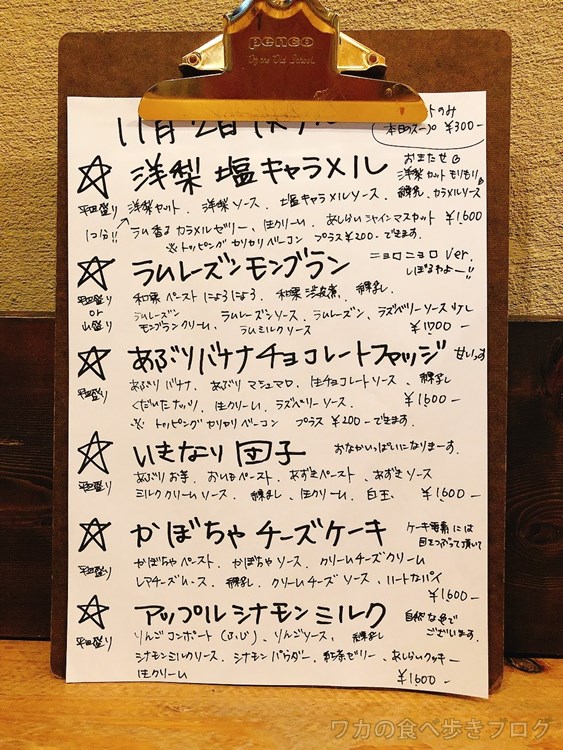 penco
11月2日
本日のスープ ¥300-
☆ 洋梨 塩キャラメル おまたせ
平皿盛り 洋梨カット、洋梨ソース、塩キャラメルソース、練乳、カラメルソース
洋梨カットモリモリ
1コ分!! ラム香るカラメルゼリー、生クリーム、あしらいシャインマスカット ¥1,600
※トッピング カリカリベーコン プラス¥200-できます。
☆ ラムレーズンモンブラン ニョロニョロ ver.
しぼるわよー!!
平皿盛り or 山盛り 和栗ペーストにょろにょろ、和栗渋皮煮、練乳
ラムレーズンモンブランクリーム、ラムレーズンソース、ラムレーズン、ラズベリーソース少し
ラムミルクソース ¥1700-
☆ あぶりバナナチョコレートファッジ 甘いっす
平皿盛り あぶりバナナ、あぶりマシュマロ、生チョコレートソース、練乳
くだいたナッツ、生クリーム、ラズベリーソース、 ¥1600-
※トッピング カリカリベーコン プラス¥200-できます。
☆ いきなり団子 おなかいっぱいになりまーす。
平皿盛り あぶりお芋、おいもペースト、あずきペースト、あずきソース
ミルククリームソース、練乳、生クリーム、白玉、 ¥1,600-
☆ かぼちゃチーズケーキ ケーキ要素には
目をつぶって頂いて
平皿盛り かぼちゃペースト、かぼちゃソース、クリームチーズクリーム
レアチーズムース、練乳、クリームチーズソース、ハートなパイ
¥1,600-
☆ アップルシナモンミルク 自然な色で
ございます。
平皿盛り りんごコンポート(ふじ)、りんごソース、練乳
シナモンミルクソース、シナモンパウダー、紅茶ゼリー、あしらいクッキー
生クリーム ¥1,600-
ワカの食べ歩きブログ